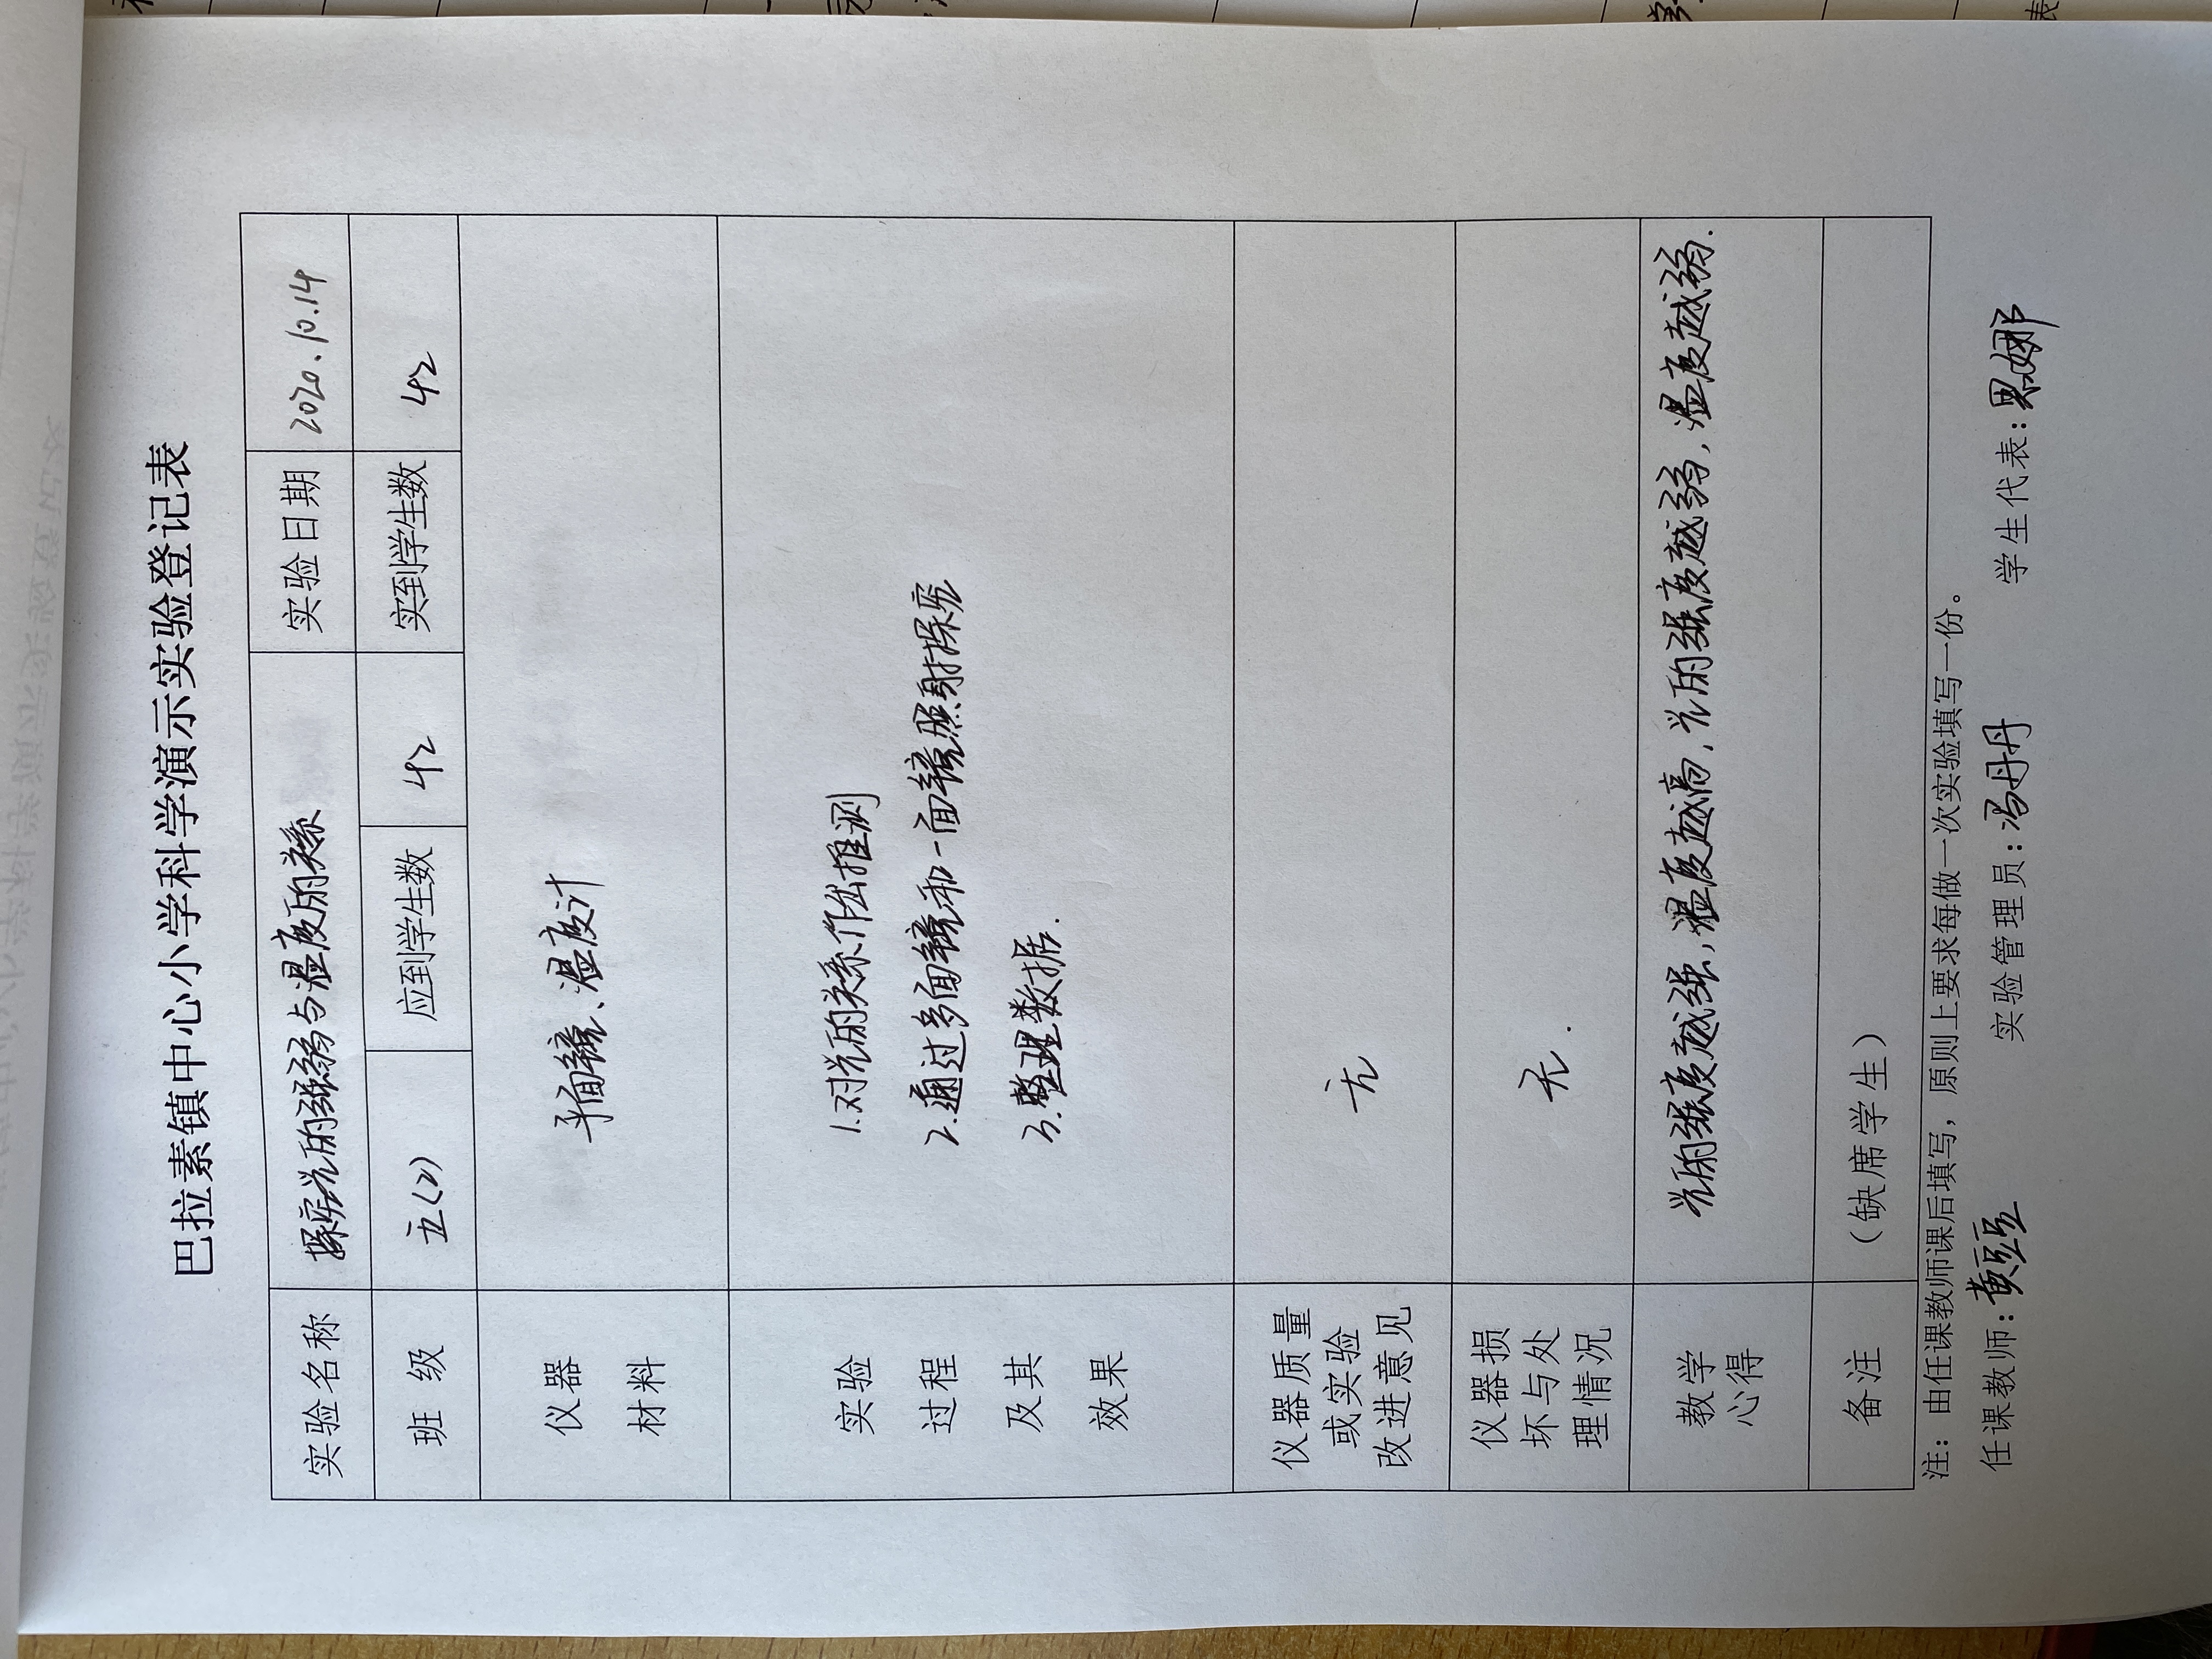 巴拉素镇中心小学科学演示实验登记表
实验名称 探究光的强弱与温度的关系 实验日期 2020.10.14
班 级 五(2) 应到学生数 42 实到学生数 42
仪器
材料
平面镜、温度计
实验
过程
及其
效果
1.对光的关系作出推测
2.通过多面镜和一面镜照射探究
3.整理数据.
仪器质量
或实验
改进意见
无
仪器损
坏与处
理情况
无.
教学
心得
光的强度越强,温度越高,光的强度越弱,温度越弱.
备注 (缺席学生)
注：由任课教师课后填写，原则上要求每做一次实验填写一份。
任课教师：黄豆豆 实验管理员：冯丹丹 学生代表：思娜